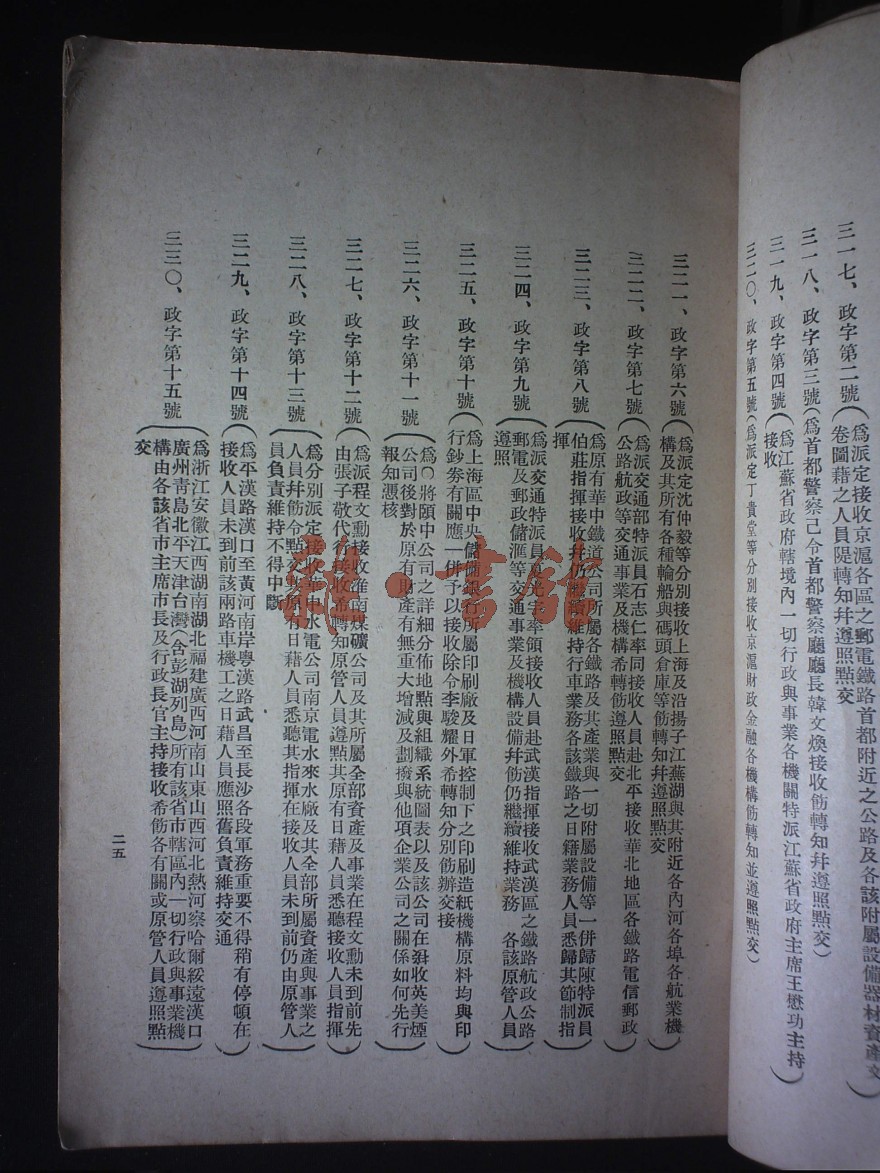 三一七、政字第二號(爲派定接收京滬各區之郵電鐵路首都附近之公路及各該附屬設備器材資產文
卷圖藉之人員隄轉知幷遵照點交)
三一八、政字第三號(爲首都警察已令首都警察廳廳長韓文煥接收飭轉知幷遵照點交)
三一九、政字第四號(爲江蘇省政府轄境內一切行政與事業各機關特派江蘇省政府主席王懋功主持
接收)
三二〇、政字第五號(爲派定丁貴堂等分別接收京滬財政金融各機構飭轉知並遵照點交)
三二一、政字第六號(爲派定沈仲毅等分別接收上海及沿揚子江蕪湖與其附近各內河各埠各航業機
構及其所有各種輪船與碼頭倉庫等飭轉知幷遵照點交)
三二二、政字第七號(爲派交通部特派員石志仁率同接收人員赴北平接收華北地區各鐵路電信郵政
公路航政等交通事業及機構希轉飭遵照點交)
三二三、政字第八號(爲原有華中鐵道公司所屬各鐵路及其產業與一切附屬設備等一併歸陳特派員
伯莊指揮接收幷仍繼續維持行車業務各該鐵路之日籍業務人員悉歸其節制指
揮)
三二四、政字第九號(爲派交通特派員夏光宇率領接收人員赴武漢指揮接收武漢區之鐵路航政公路
郵電及郵政儲滙等交通事業及機構設備幷飭仍繼續維持業務 各該原管人員
遵照)
三二五、政字第十號(爲上海區中央儲備銀行所屬印刷廠及日軍控制下之印刷造紙機構原料均與印
行鈔券有關應一併予以接收除令李駿耀外希轉知分別飭辦交接)
三二六、政字第十一號(爲〇將頤中公司之詳細分佈地點與組織系統圖表以及該公司在接收英美煙
公司後對於原有財產有無重大增減及劃撥與他項企業公司之關係如何先行
報知憑核)
三二七、政字第十二號(爲派程文勳接收淮南煤礦公司及其所屬全部資產及事業在程文勳未到前先
由張子敬代行接收希轉知原管人員遵點其原有日藉人員悉聽接收人員指揮)
三二八、政字第十三號(爲分別派定接收華中水電公司南京電水來水廠及其全部所屬資產與事業之
人員幷飭令點交其原有日藉人員悉聽其指揮在接收人員未到前仍由原管人
員負責維持不得中斷)
三二九、政字第十四號(爲平漢路漢口至黃河南岸粵漢路武昌至長沙各段軍務重要不得稍有停頓在
接收人員未到前該兩路車機工之日藉人員應照舊負責維持交通)
三三〇、政字第十五號(爲浙江安徽江西湖南湖北福建廣西河南山東山西河北熱河察哈爾綏遠漢口
廣州靑島北平天津台灣(含彭湖列島)所有該省市轄區內一切行政與事業機
構由各該省市主席市長及行政長官主持接收希飭各有關或原管人員遵照點
交)
二五
雜·書館